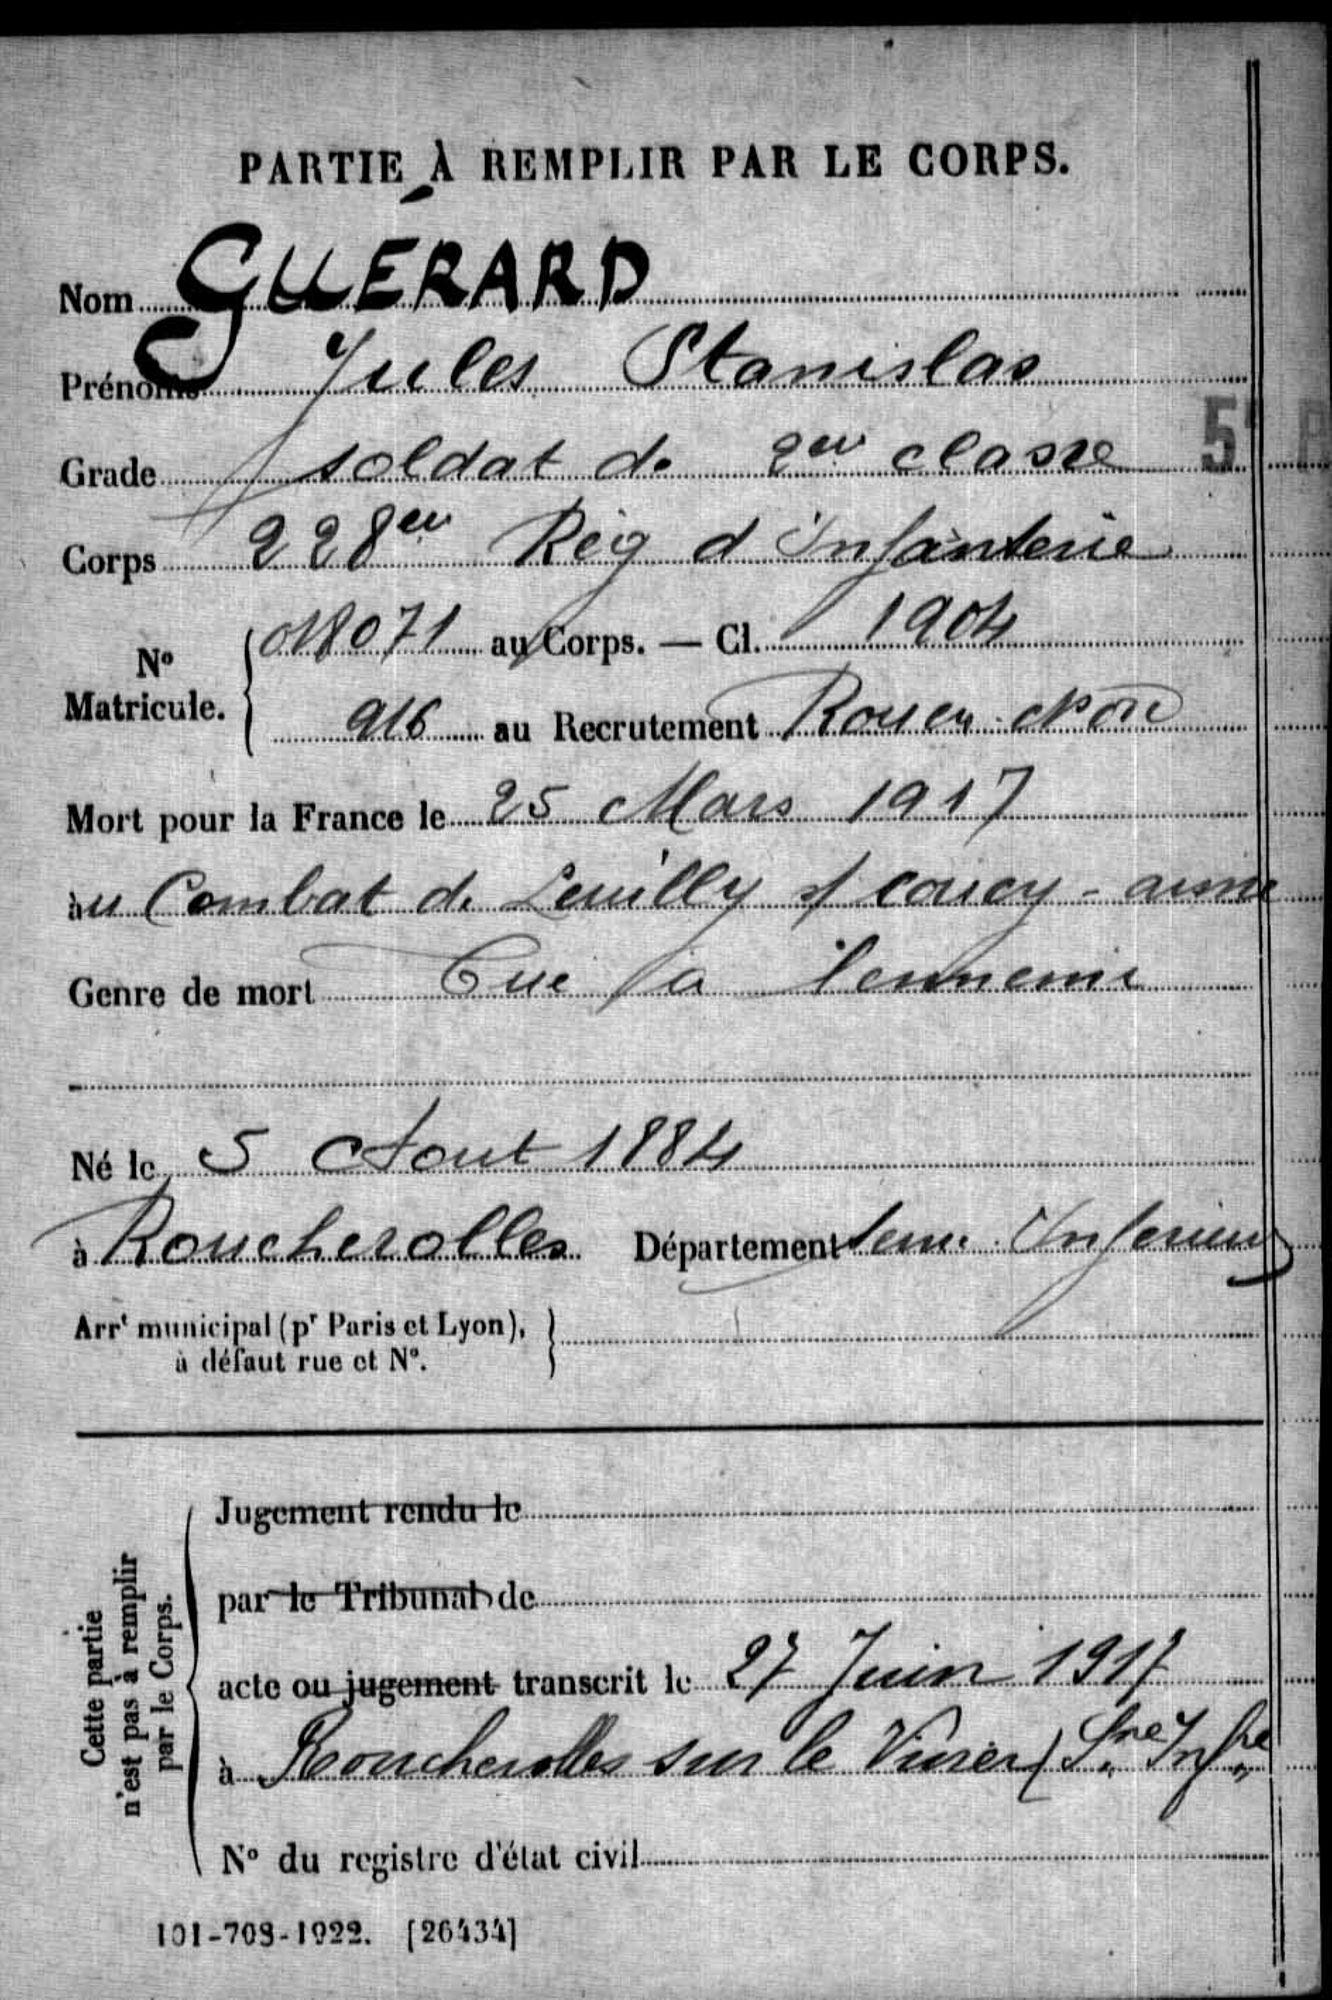 PARTIE À REMPLIR PAR LE CORPS.
Nom GUÉRARD
Prénoms Jules Stanislas
Grade soldat de 2eu classe
Corps 228eu Rég d'Infanterie
No Matricule. 018071 au Corps. — Cl. 1904
916 au Recrutement Rouen Nord
Mort pour la France le 25 Mars 1917
au Combat de Leuilly s/ Coucy - aisne
Genre de mort Tué à l'ennemi
Né le 5 Aout 1884
à Roucherolles Département Seine Inferieure
Arrt municipal (pr Paris et Lyon),
à défaut rue et No.
Cette partie
n'est pas à remplir
par le Corps.
Jugement rendu le
par le Tribunal de
acte ou jugement transcrit le 27 Juin 1917
à Roncherolles sur le Vivier (Sne Infre
No du registre d'état civil
101-708-1922. [26434]